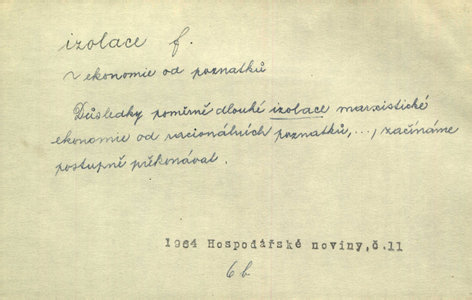 izolace f.
~ ekonomie od poznatků
Důsledky poměrně dlouhé izolace marxistické
ekonomie od racionálních poznatků,..., začínáme
postupně překonávat.
1964 Hospodářské noviny,č.11
6b